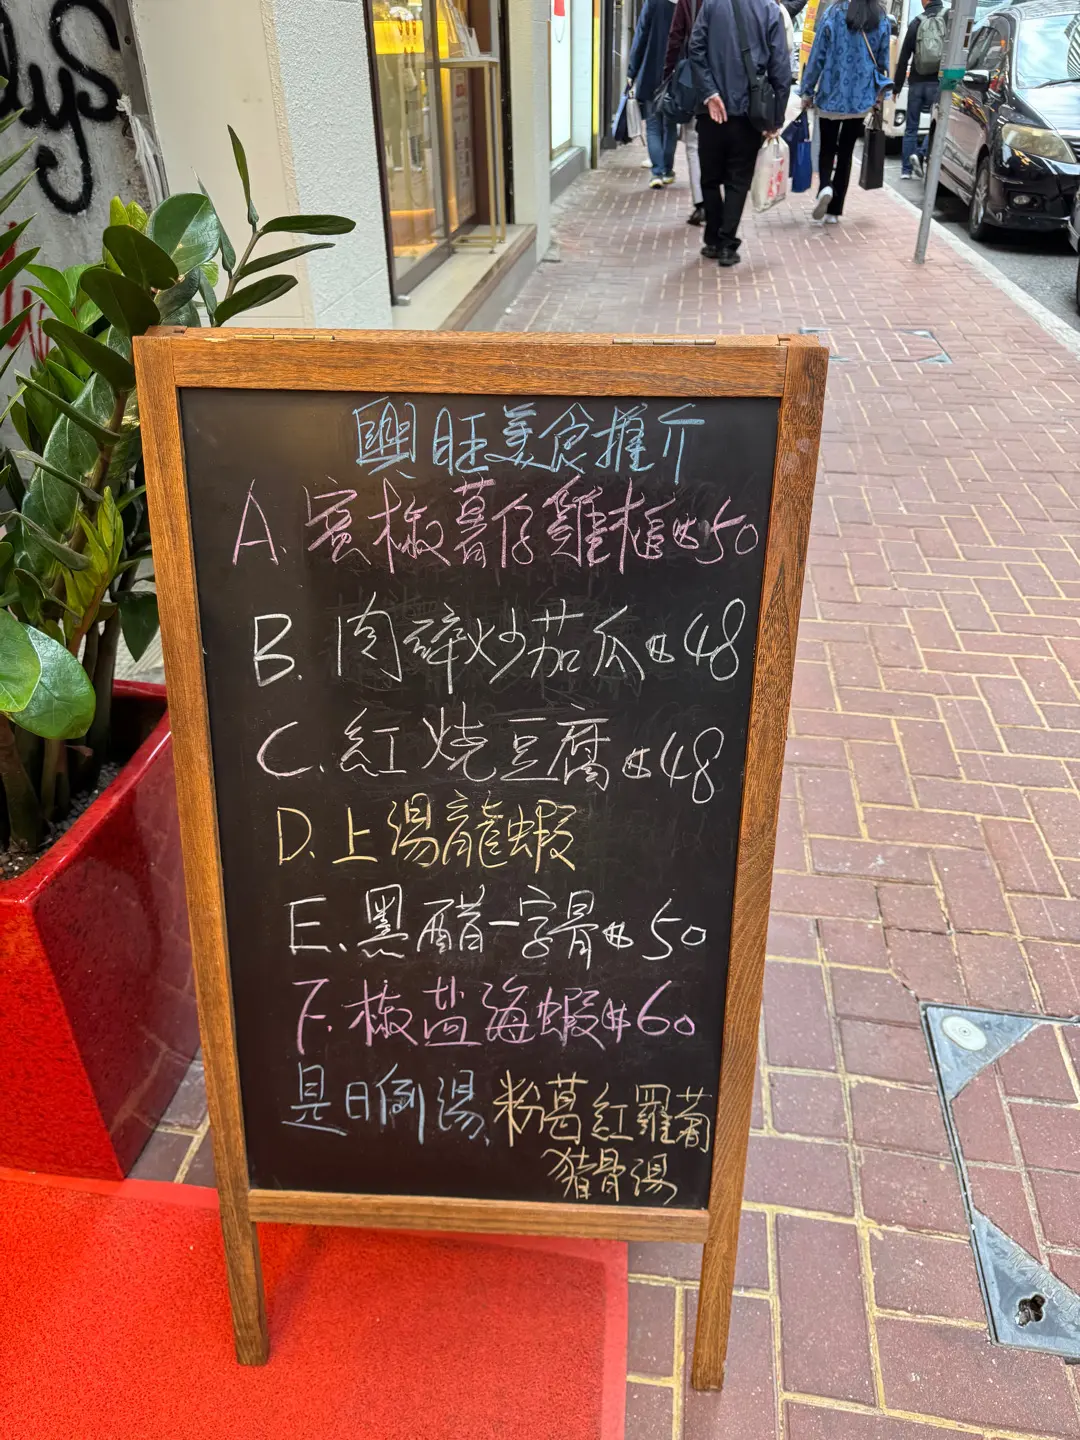 興旺美食推介
A. 蜜椒薯仔雞柳$50
B. 肉碎炒茄瓜$48
C. 紅燒豆腐$48
D. 上湯龍蝦
E. 黑醋一字骨$50
F. 椒盐海蝦$60
是日例湯、粉葛紅羅蔔
猪骨湯